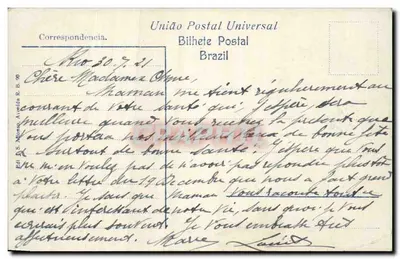 União Postal Universal
Correspondencia.
Bilhete Postal
Brazil
Rio 30.7.21
Chère Madame
Maman me tient régulièrement au
courant de votre santé qui j'espère sera
meilleure quand vous
de bonne
Surtout de bonne santé. J'espère que vous
ne m'en voulez pas de n'avoir pas répondu plus tôt
à votre lettre du 19 décembre que nous a fait grand
plaisir. Je sais que Maman vous raconte tout ce
qui est intéressant de notre vie, sans quoi je vous
écrirais plus souvent. Je vous embrasse très
affectueusement. Marie